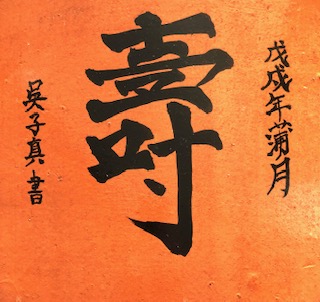 戊戌年蒲月
壽
吳子真書